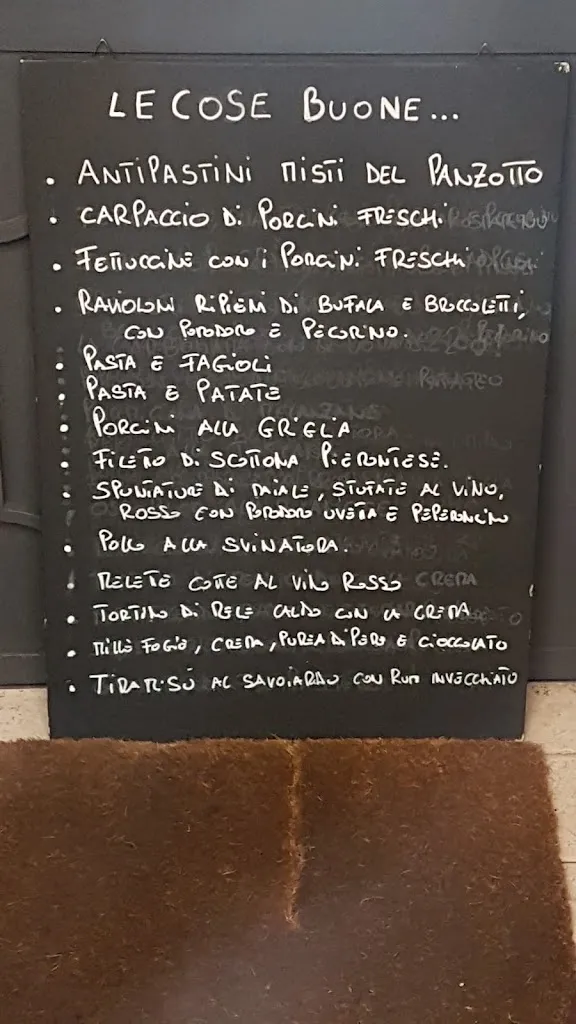 LE COSE BUONE...
• ANTIPASTINI MISTI DEL PANZOTTO
• CARPACCIO DI PORCINI FRESCHI
• FETTUCCINE CON I PORCINI FRESCHI
• RAVIOLONI RIPIENI DI BUFALA E BROCCOLETTI,
CON POMODORO E PECORINO.
• PASTA E FAGIOLI
• PASTA E PATATE
• PORCINI ALLA GRIGLIA
• FILETTO DI SCOTTONA PIEMONTESE.
• SPUNTATURE DI MAIALE, STUFATE AL VINO,
ROSSO CON POMODORO UVETTA E PEPERONCINO
• POLLO ALLA SVINATORA.
• MELETE COTTE AL VINO ROSSO CREMA
• TORTINO DI MELE CALDO CON LA CREMA
• MILLE FOGLIE, CREMA, PUREA DI PERE E CIOCCOLATO
• TIRAMISÙ AL SAVOIARDO CON RUM INVECCHIATO